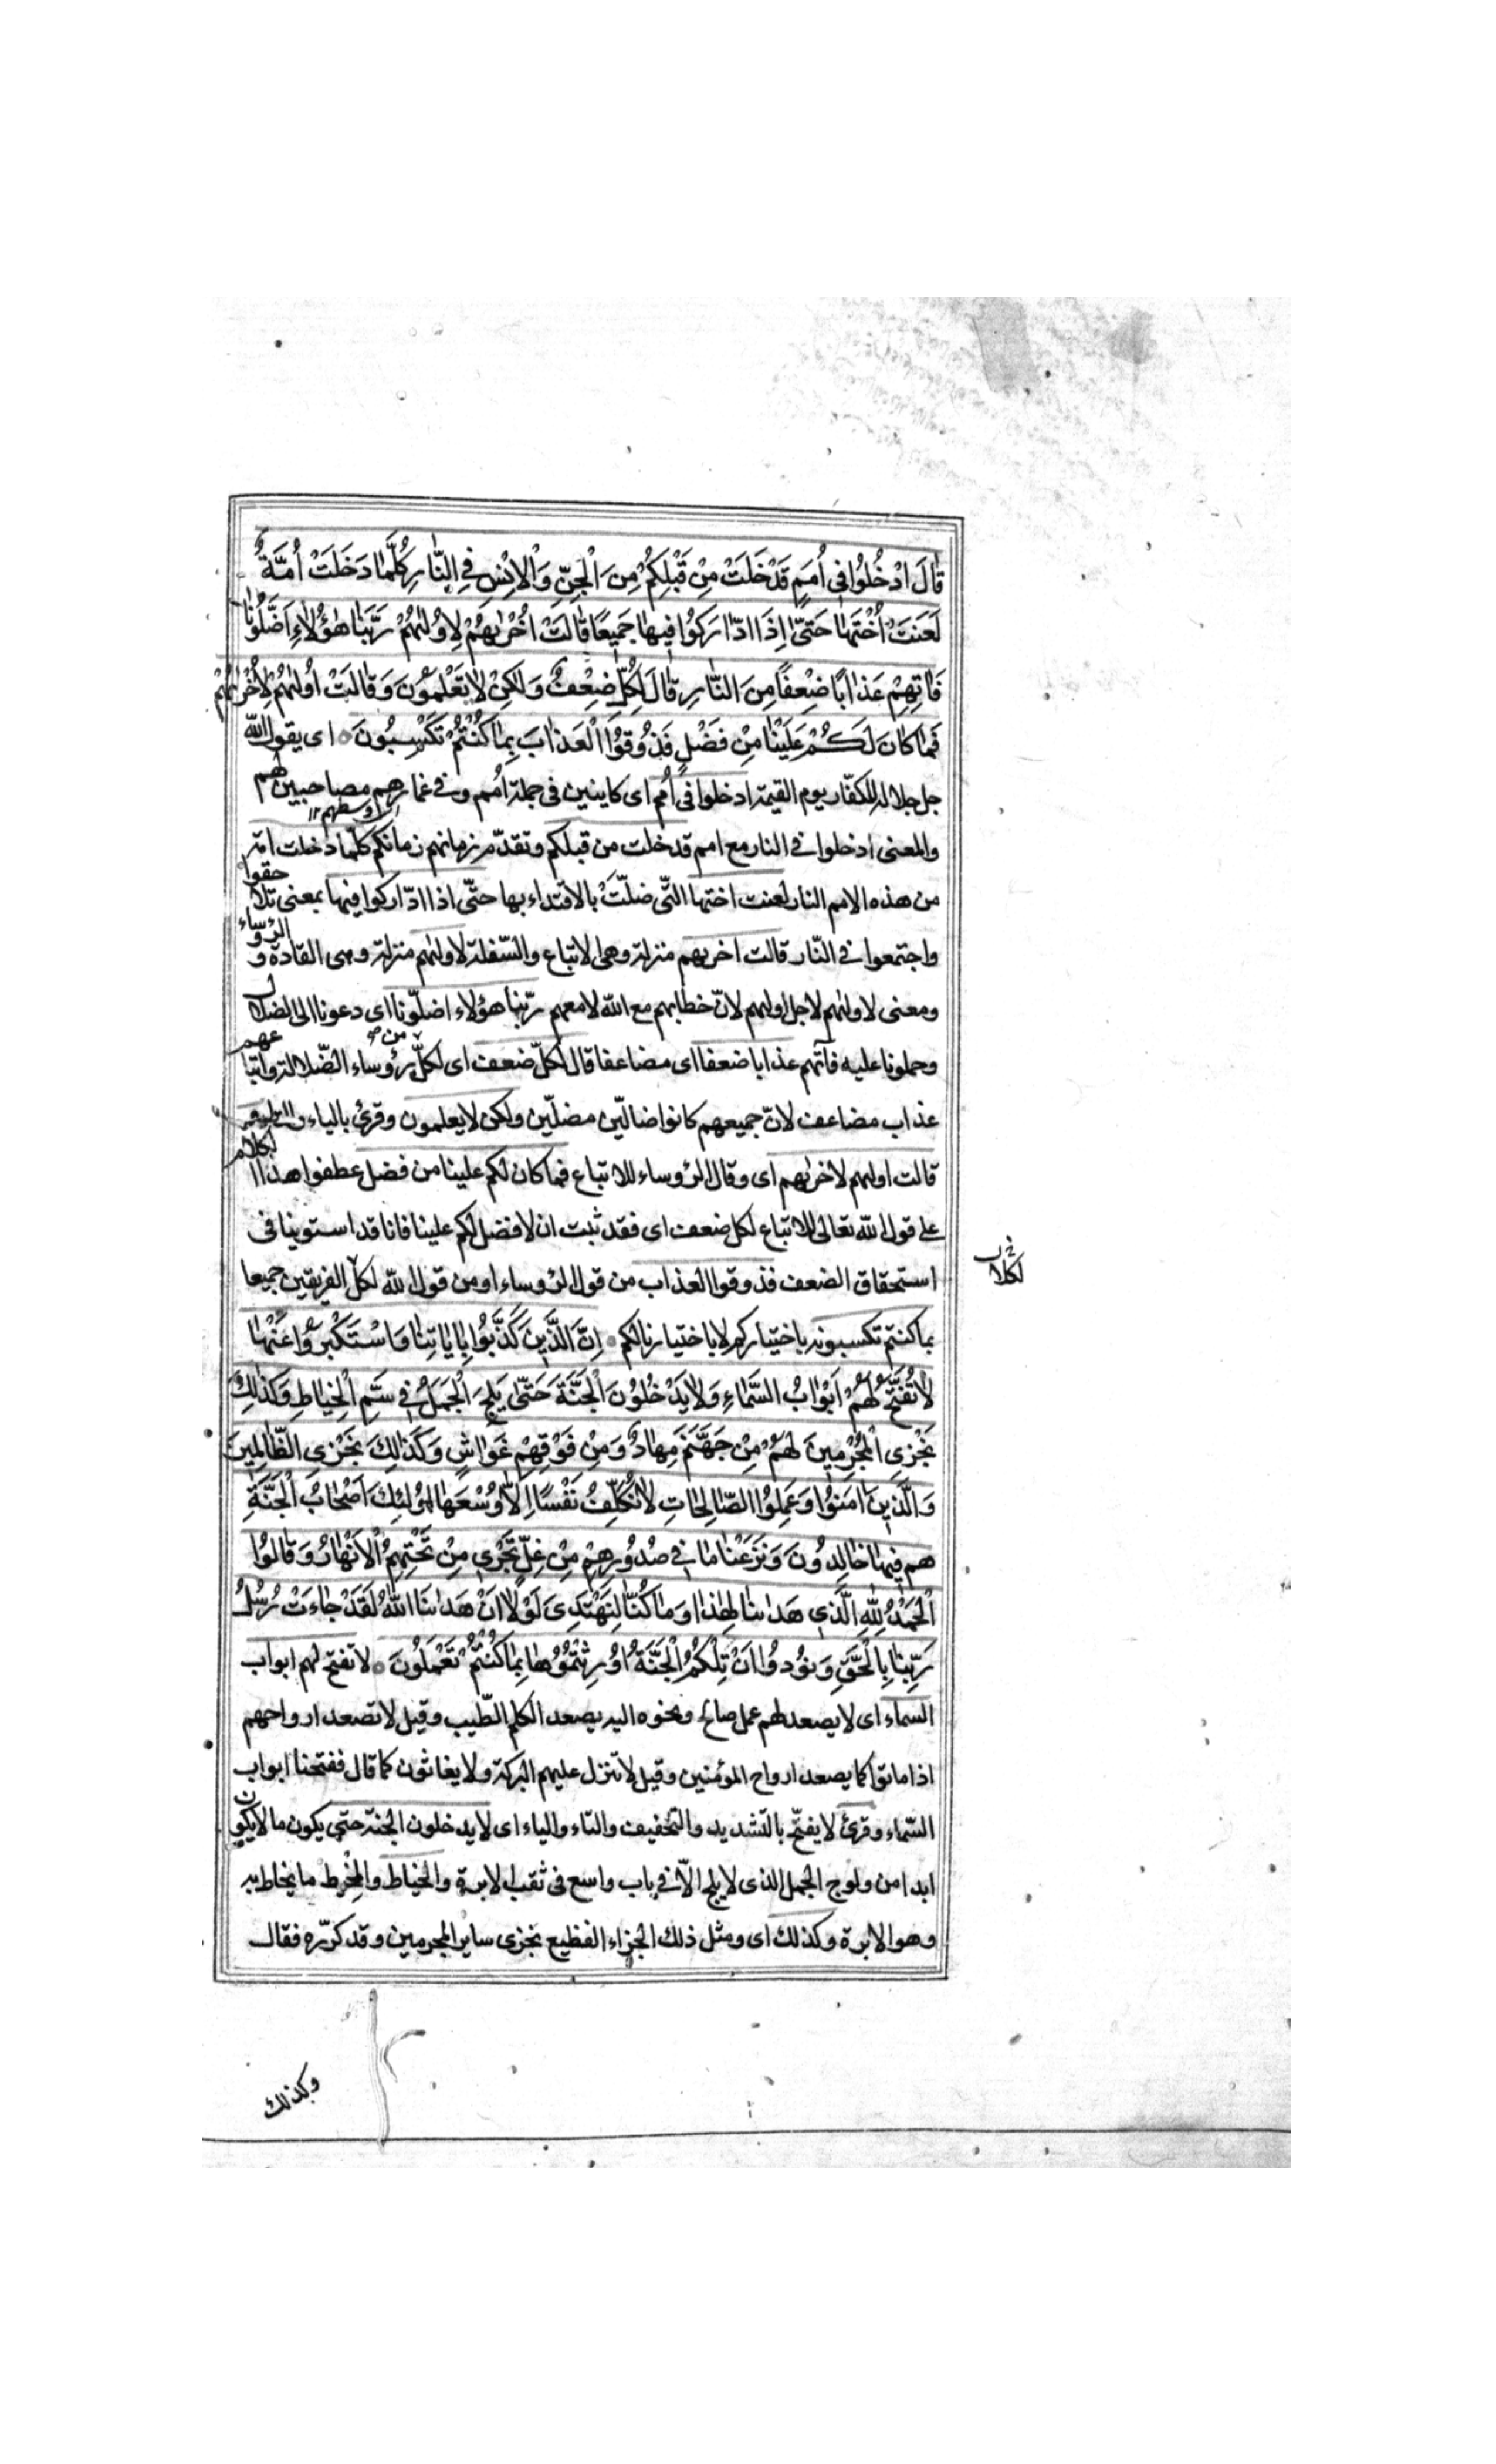 قَالَ ادْخُلُوا فِي أُمَمٍ قَدْ خَلَتْ مِنْ قَبْلِكُمْ مِنَ الْجِنِّ وَالْإِنْسِ فِي النَّارِ كُلَّمَا دَخَلَتْ أُمَّةٌ
لَعَنَتْ أُخْتَهَا حَتَّىٰ إِذَا ادَّارَكُوا فِيهَا جَمِيعًا قَالَتْ أُخْرٰيهُمْ لِأُولٰيهُمْ رَبَّنَا هٰؤُلَاءِ أَضَلُّونَا
فَاٰتِهِمْ عَذَابًا ضِعْفًا مِنَ النَّارِ قَالَ لِكُلٍّ ضِعْفٌ وَلٰكِنْ لَا تَعْلَمُونَ وَقَالَتْ أُولٰيهُمْ لِأُخْرٰيهُمْ
فَمَا كَانَ لَكُمْ عَلَيْنَا مِنْ فَضْلٍ فَذُوقُوا الْعَذَابَ بِمَا كُنْتُمْ تَكْسِبُونَ ۝ اى يقول الله
جل جلاله للكفّار يوم القيمة ادخلوا فى أمم اى كاينين فى جملة أمم وفى غمارهم مصاحبين لهم
اوسطهم ١٢
والمعنى ادخلوا فى النار مع امم قد خلت من قبلكم وتقدّم زمانهم زمانكم كلّما دخلت امة
من هذه الامم النار لعنت اختها التّى ضلّت بالاقتداء بها حتّى اذا ادّاركوا فيها بمعنى تلاحقوا
واجتمعوا فى النّار قالت اخريهم منزلة وهى الاتباع والسّفلة لاوليهم منزلة وهى القادة و الرؤساء
ومعنى لاوليهم لاجل اوليهم لانّ خطابهم مع الله لا معهم ربّنا هؤلاء اضلّونا اى دعونا الى الضلال
وحملونا عليه فآتهم عذابا ضعفا اى مضاعفا قال لكلّ ضعف اى لكلّ من رؤساء الضّلالة واتباعهم
عذاب مضاعف لانّ جميعهم كانوا ضالّين مضلّين ولكن لا يعلمون وقرئ بالياء
قالت اوليهم لاخريهم اى وقال الرؤساء للاتباع فما كان لكم علينا من فضل عطفوا هذا الكلام
على قول الله تعالى للاتباع لكل ضعف اى فقد ثبت ان لا فضل لكم علينا فانا قد استوينا فى
استحقاق الضعف فذوقوا العذاب من قول الرؤساء او من قول الله لكل الفريقين جميعا
بما كنتم تكسبون باختياركم لا باختيارنا لكم ۝ إِنَّ الَّذِينَ كَذَّبُوا بِاٰيَاتِنَا وَاسْتَكْبَرُوا عَنْهَا
لَا تُفَتَّحُ لَهُمْ أَبْوَابُ السَّمَاءِ وَلَا يَدْخُلُونَ الْجَنَّةَ حَتَّىٰ يَلِجَ الْجَمَلُ فِي سَمِّ الْخِيَاطِ وَكَذٰلِكَ
نَجْزِي الْمُجْرِمِينَ لَهُمْ مِنْ جَهَنَّمَ مِهَادٌ وَمِنْ فَوْقِهِمْ غَوَاشٍ وَكَذٰلِكَ نَجْزِي الظَّالِمِينَ
وَالَّذِينَ اٰمَنُوا وَعَمِلُوا الصَّالِحَاتِ لَا نُكَلِّفُ نَفْسًا إِلَّا وُسْعَهَا أُولٰئِكَ أَصْحَابُ الْجَنَّةِ
هم فِيهَا خَالِدُونَ وَنَزَعْنَا مَا فِي صُدُورِهِمْ مِنْ غِلٍّ تَجْرِي مِنْ تَحْتِهِمُ الْأَنْهَارُ وَقَالُوا
الْحَمْدُ لِلّٰهِ الَّذِي هَدٰينَا لِهٰذَا وَمَا كُنَّا لِنَهْتَدِيَ لَوْلَا أَنْ هَدٰينَا اللّٰهُ لَقَدْ جَاءَتْ رُسُلُ
رَبِّنَا بِالْحَقِّ وَنُودُوا أَنْ تِلْكُمُ الْجَنَّةُ أُورِثْتُمُوهَا بِمَا كُنْتُمْ تَعْمَلُونَ ۝ لا تفتح لهم ابواب
السماء اى لا يصعد لهم عمل صالح ونحوه اليه يصعد الكلم الطّيب وقيل لا تصعد ارواحهم
اذا ماتوا كما يصعد ارواح المؤمنين وقيل لا تنزل عليهم البركة ولا يغاثون كما قال ففتحنا ابواب
السّماء وقرئ لا يفتّح بالتشديد والتخفيف والتاء والياء اى لا يدخلون الجنة حتى يكون ما لا يكون
ابدا من ولوج الجمل الذى لا يلج الّا فى باب واسع فى ثقب الابرة والخياط والمخيط ما يخاط به
وهو الابرة وكذلك اى ومثل ذلك الجزاء الفظيع نجزى ساير المجرمين وقد كرّره فقال
وكذلك